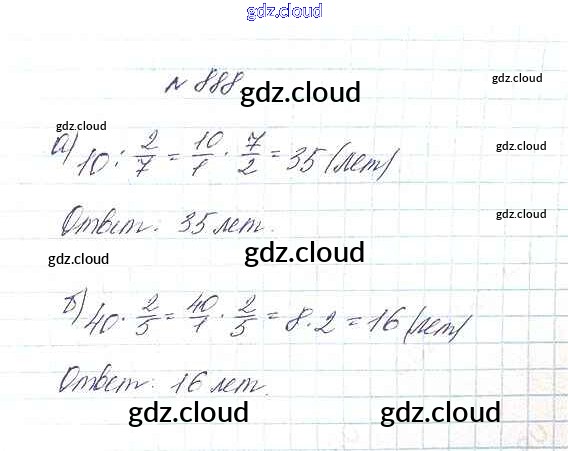 gdz.cloud
gdz.cloud
№ 888
gdz.cloud
gdz.cloud
gdz.cloud
а) 10 : 2/7 = 10/1 · 7/2 = 35 (лет)
gdz.cloud
Ответ: 35 лет.
gdz.cloud
gdz.cloud
gdz.cloud
б) 40 · 2/5 = 40/1 · 2/5 = 8 · 2 = 16 (лет)
gdz.cloud
Ответ: 16 лет.
gdz.cloud
gdz.cloud